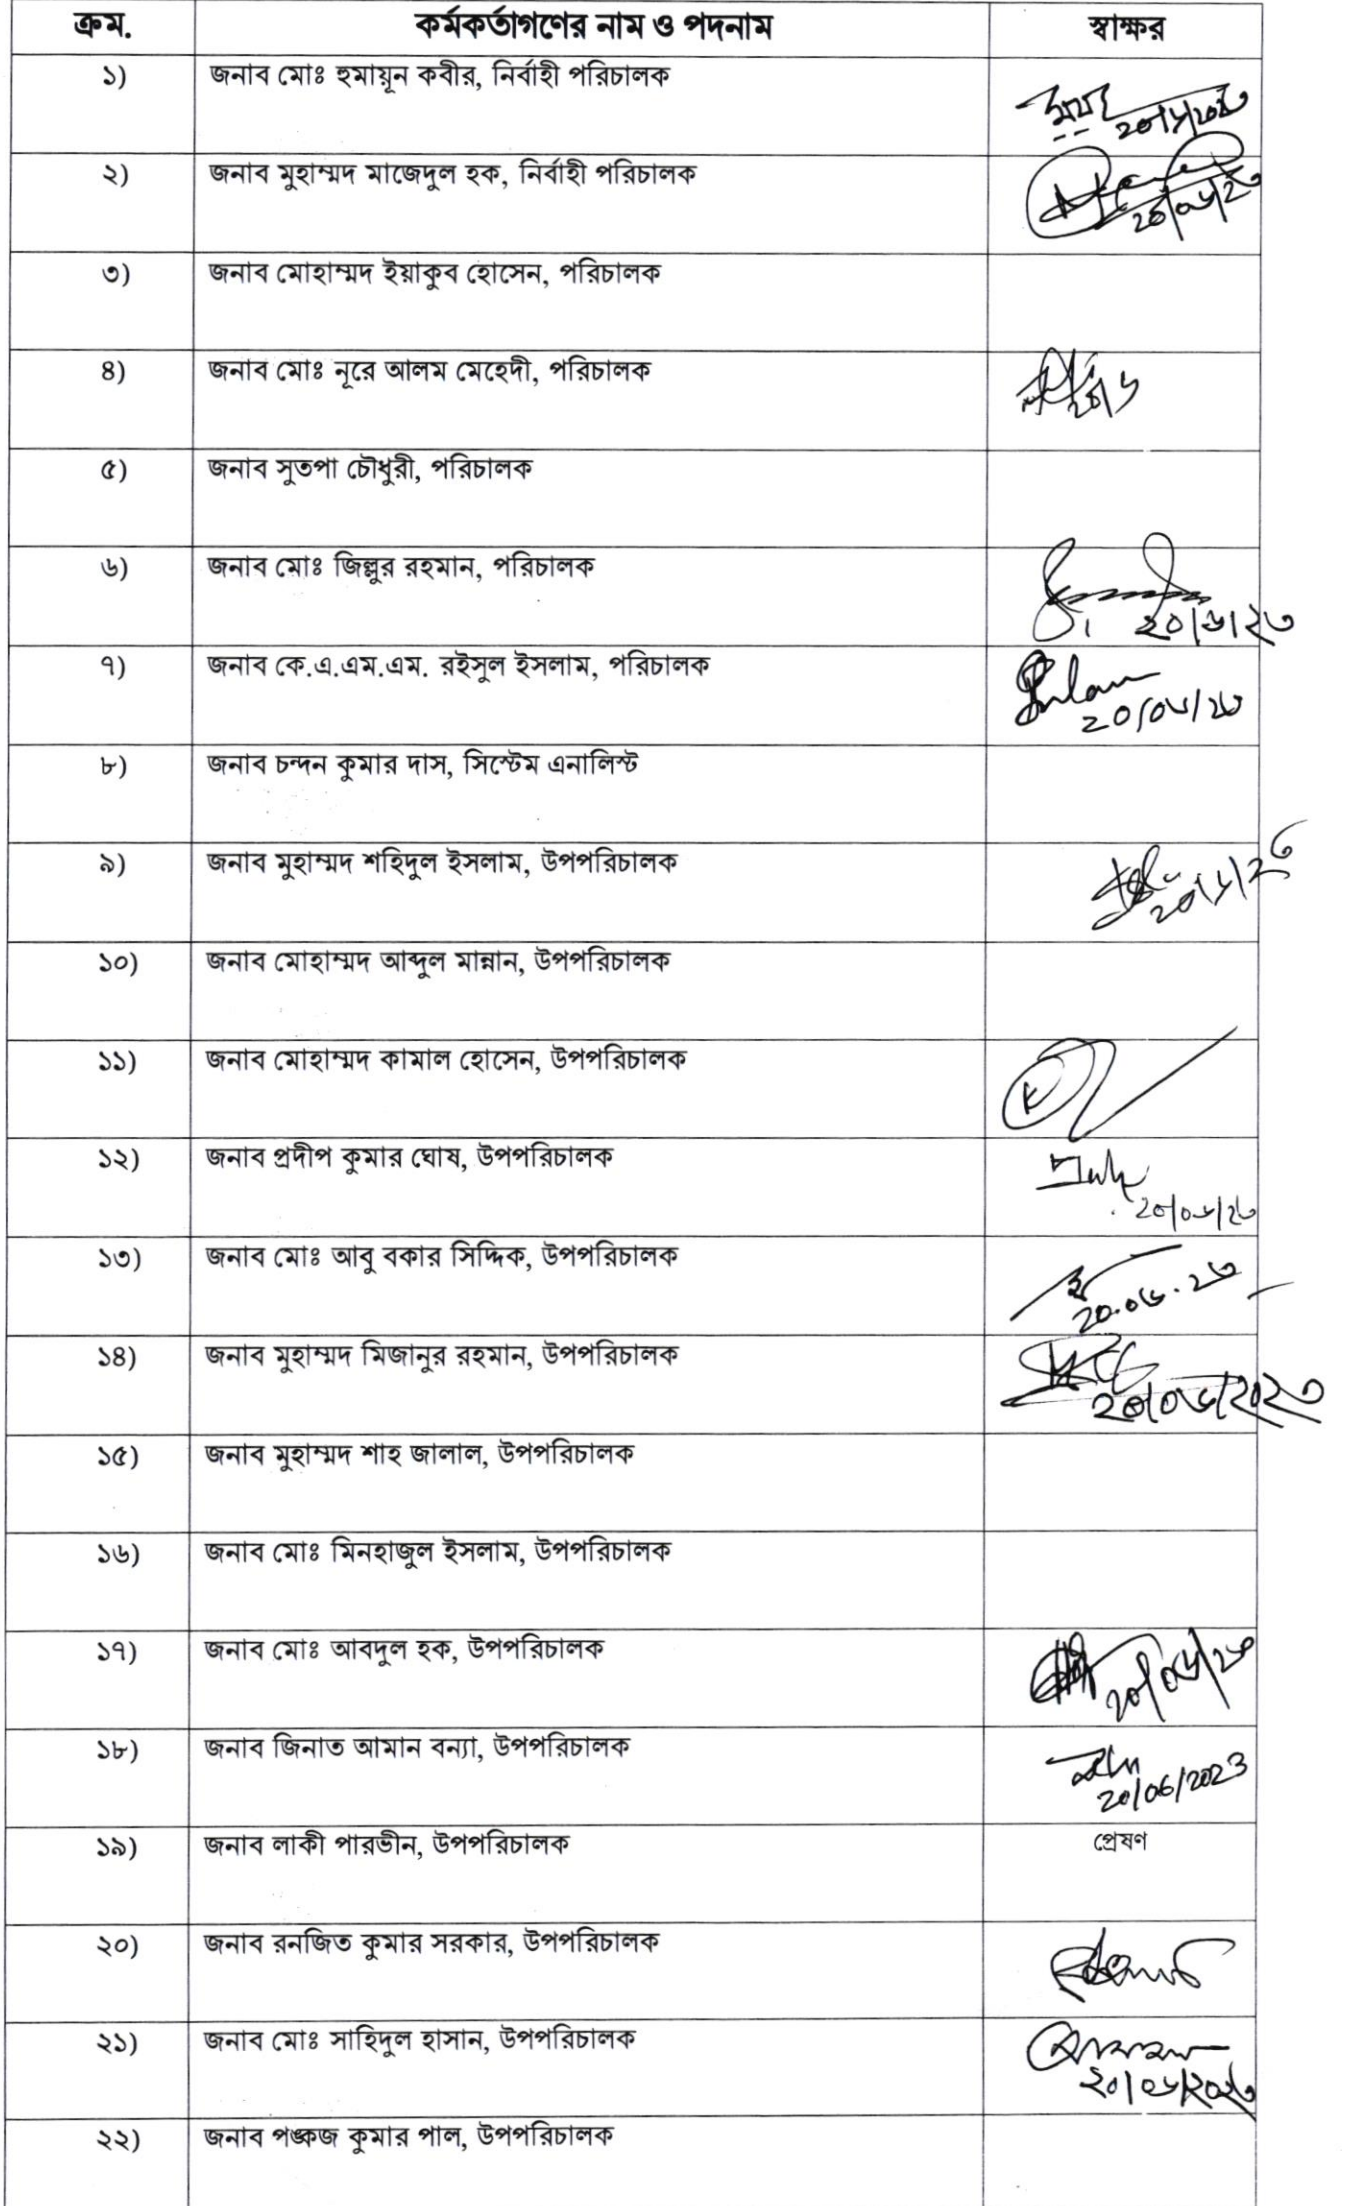 ক্রম. কর্মকর্তাগণের নাম ও পদনাম স্বাক্ষর
১) জনাব মোঃ হুমায়ূন কবীর, নির্বাহী পরিচালক
২) জনাব মুহাম্মদ মাজেদুল হক, নির্বাহী পরিচালক
৩) জনাব মোহাম্মদ ইয়াকুব হোসেন, পরিচালক
৪) জনাব মোঃ নূরে আলম মেহেদী, পরিচালক
৫) জনাব সুতপা চৌধুরী, পরিচালক
৬) জনাব মোঃ জিল্লুর রহমান, পরিচালক
২০/৬/২৩
৭) জনাব কে.এ.এম.এম. রইসুল ইসলাম, পরিচালক
২০/০৬/২৩
৮) জনাব চন্দন কুমার দাস, সিস্টেম এনালিস্ট
৯) জনাব মুহাম্মদ শহিদুল ইসলাম, উপপরিচালক
১০) জনাব মোহাম্মদ আব্দুল মান্নান, উপপরিচালক
১১) জনাব মোহাম্মদ কামাল হোসেন, উপপরিচালক
১২) জনাব প্রদীপ কুমার ঘোষ, উপপরিচালক
২০/০৬/২৩
১৩) জনাব মোঃ আবু বকার সিদ্দিক, উপপরিচালক
২০.০৬.২৩
১৪) জনাব মুহাম্মদ মিজানুর রহমান, উপপরিচালক
২০/০৬/২০২৩
১৫) জনাব মুহাম্মদ শাহ জালাল, উপপরিচালক
১৬) জনাব মোঃ মিনহাজুল ইসলাম, উপপরিচালক
১৭) জনাব মোঃ আবদুল হক, উপপরিচালক
২০/০৬/২৩
১৮) জনাব জিনাত আমান বন্যা, উপপরিচালক
20/06/2023
১৯) জনাব লাকী পারভীন, উপপরিচালক প্রেষণ
২০) জনাব রনজিত কুমার সরকার, উপপরিচালক
২১) জনাব মোঃ সাহিদুল হাসান, উপপরিচালক
২০/০৬/২০২৩
২২) জনাব পঙ্কজ কুমার পাল, উপপরিচালক